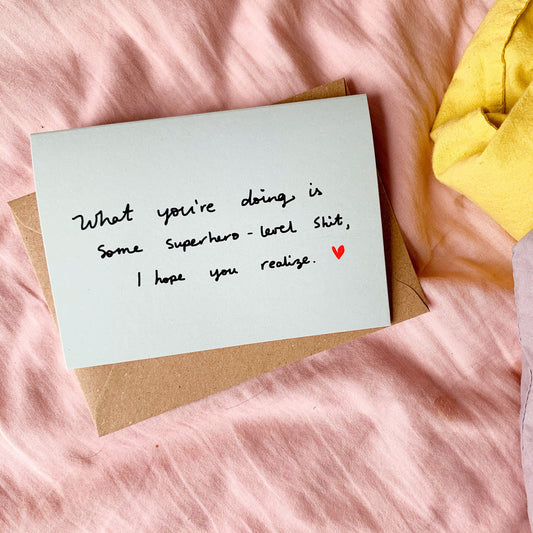 What you're doing is
some superhero-level shit,
I hope you realize. ♥